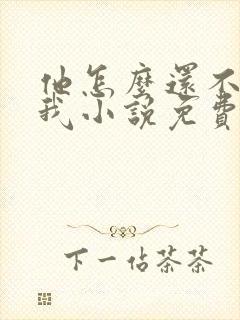 他怎麼還不
我小說免費
下一佔茶茶